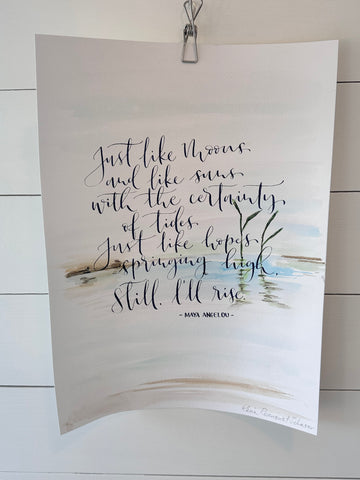 Just like moons
and like suns
with the certainty
of tides.
Just like hopes
springing high,
Still, I'll rise.
- MAYA ANGELOU -